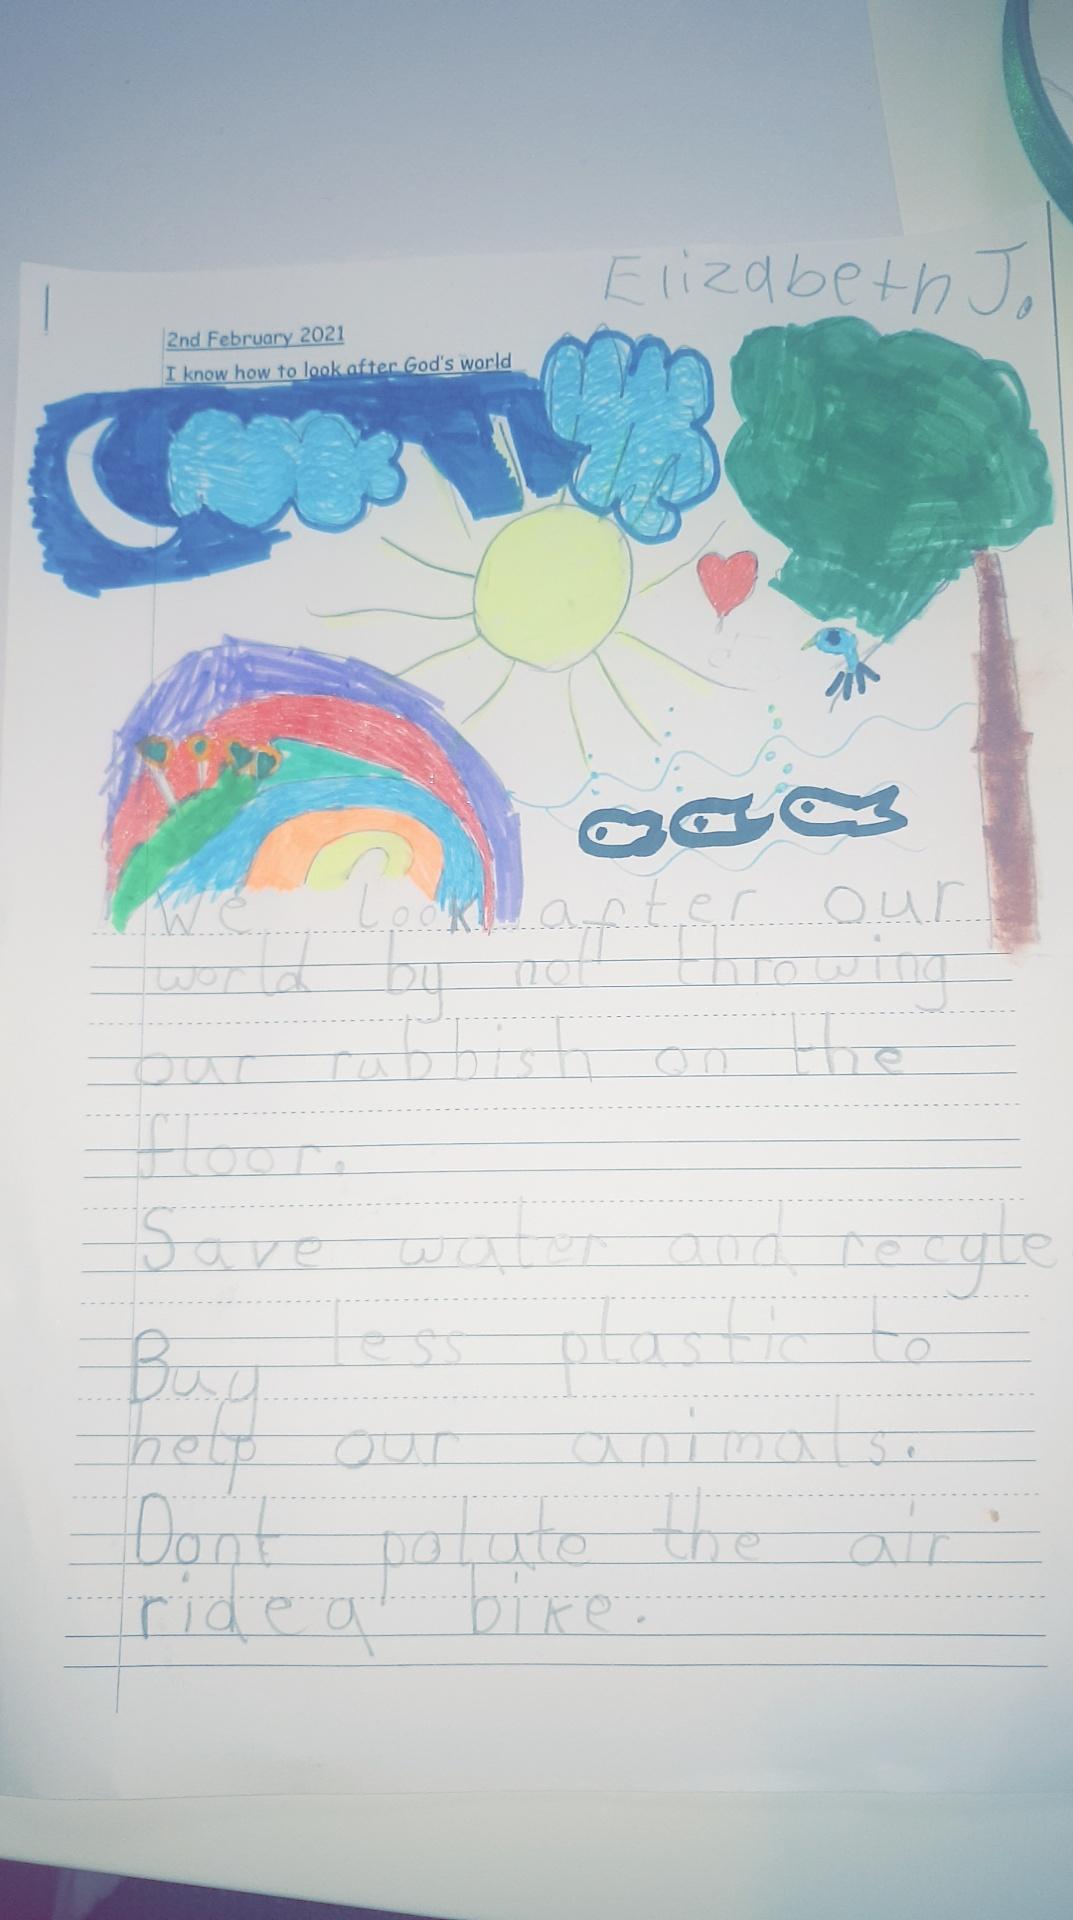 Elizabeth J.
2nd February 2021
I know how to look after God's world
We look after our
world by not throwing
our rubbish on the
floor.
Save water and recyle
Buy less plastic to
help our animals.
Dont polute the air
ride a bike.